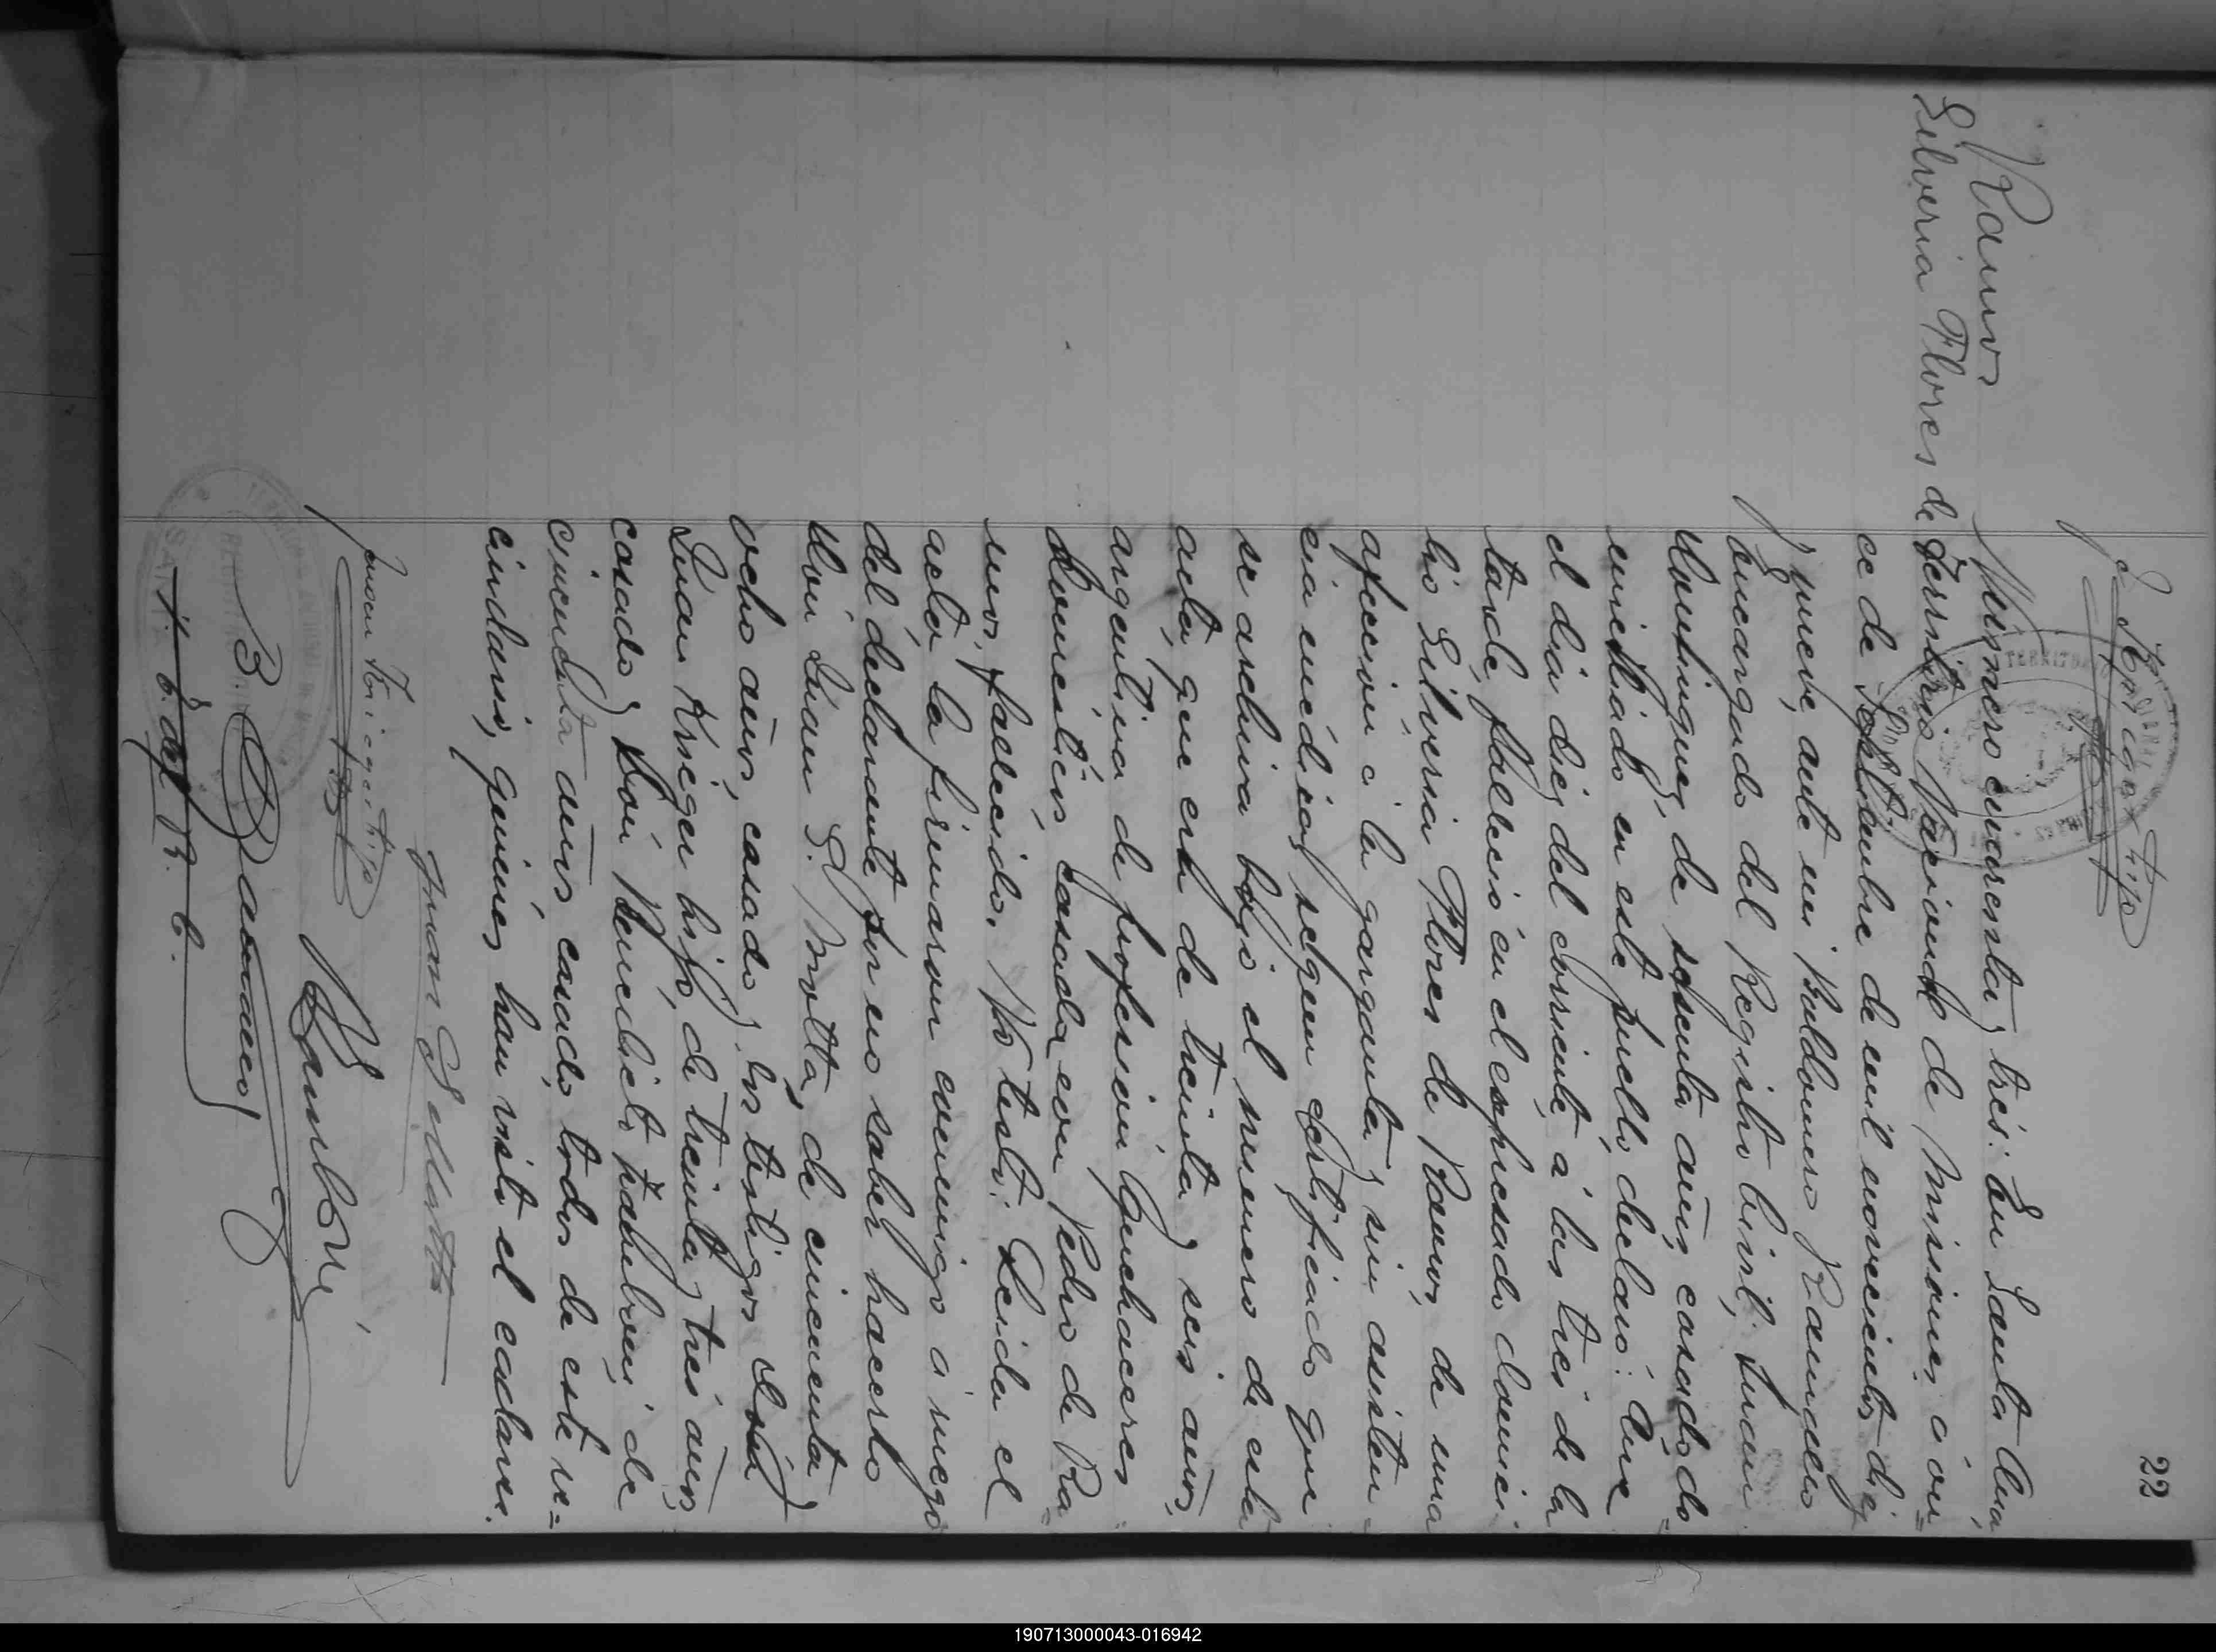 22
J. Krieger hijo
Ramos
Silveria Flores de
Numero cuarenta y tres: En Santa Ana,
Territorio Nacional de Misiones, á on=
ce de Septiembre de mil novecientos diez
y nueve, ante mi Baldomero
Encargado del Registro Civil, Juan
Domingues, de sesenta años, casado, do=
miciliado en este pueblo declaró: Que
el dia diez del corriente á las tres de la
tarde, falleció en el expresado domici-
lio Silveria Flores de Ramos, de una
afeccion á la garganta y sin asisten=
cia médica, segun certificado que
se archiva bajo el numero de esta
acta, que era de treinta y seis años,
argentina de profesion Quehaceres
domésticos, casada con Pedro de Ra=
mos, fallecido. No testó. Leida el
acta la firmaron conmigo á ruego
del declarante por no saber hacerlo
Don Juan S. Motta, de cincuenta y
ocho años, casado y los testigos Don
Juan Krieger hijo, de treinta y tres años,
casado y Don Benedicto Zamboni de
cincuenta años casado, todos de este ve=
cindario, quienes han visto el cadaver.
Juan S. Motta
Juan Krieger hijo
B Zamboni
B.